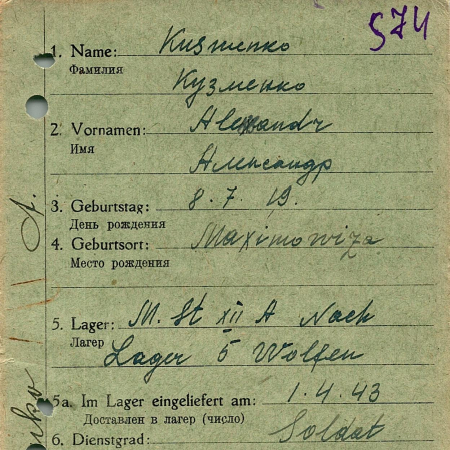 574
1. Name: Kusmenko
Фамилия
Кузменко
2. Vornamen: Alexandr
Имя
Александр
3. Geburtstag: 8. 7. 19.
День рождения
4. Geburtsort: Maximowiza
Место рождения
5. Lager: M. St XII A Nach
Лагер
Lager 5 Wolfen
5a. Im Lager eingeliefert am: 1. 4. 43
Доставлен в лагер (число)
6. Dienstgrad: Soldat